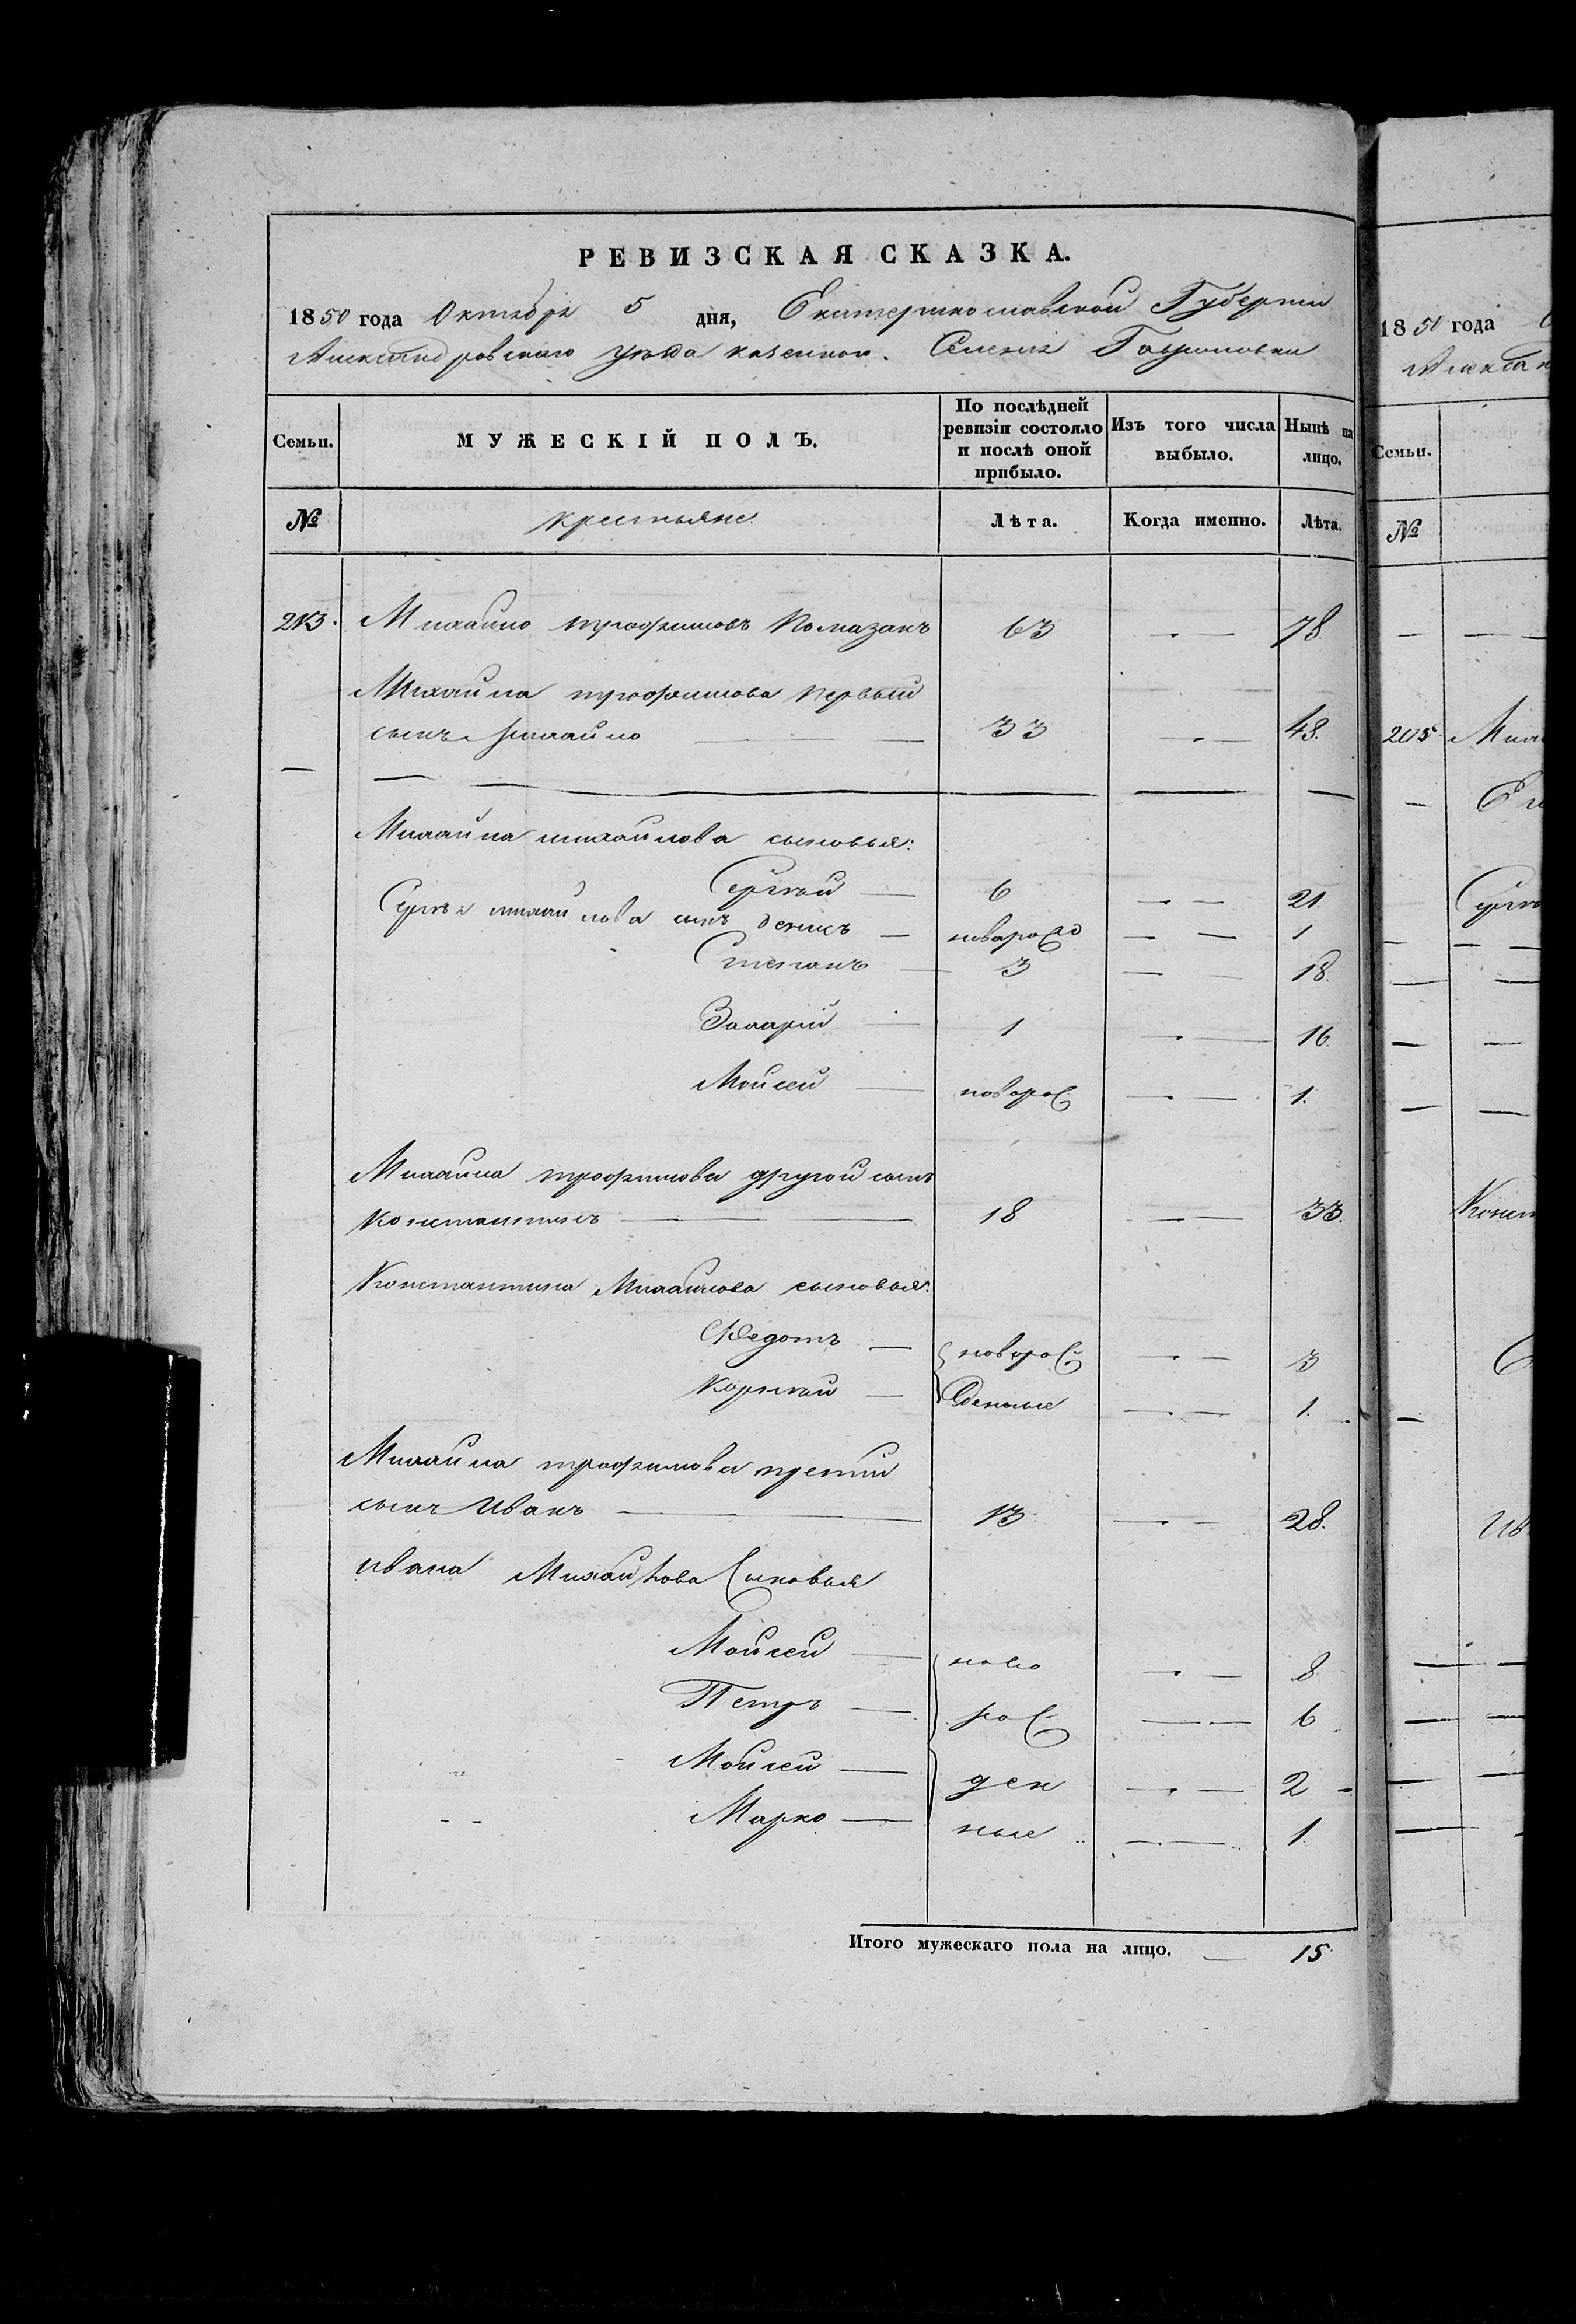 РЕВИЗСКАЯ СКАЗКА.
1850 года Октября 5 дня, Екатеринославской Губерніи
Александровскаго уѣзда казенного Селенія Гавриловки
Семьи. МУЖЕСКІЙ ПОЛЪ. По послѣдней ревизіи состояло и послѣ оной прибыло. Изъ того числа выбыло. Нынѣ на лицо.
№ крестьяне. Лѣта. Когда именно. Лѣта.
213. Михайло трофимовъ Помазанъ 63 — 78.
Михайла трофимова первый
сынъ михайло — 33 — 48.
Михайла михайлова сыновья:
Сергѣй — 6 — 21.
Сергѣя михайлова сынъ денисъ — новорож — 1
Степанъ — 3 — 18.
Захарій — 1 — 16.
Мойсей — новорож — 1.
Михайла трофимова другой сынъ
Константинъ — 18 — 33.
Константина Михайлова сыновья:
Федотъ — новорож — 3
Корнѣй — денные — 1.
Михайла трофимова третій
сынъ Иванъ — 13 — 28.
Ивана Михайлова Сыновья
Мойсей — ново — 8
Петръ — рож — 6
Мойсей — ден — 2
Марко — ные — 1.
Итого мужескаго пола на лицо. — 15.
1850 года
Алексан
Семьи.
№
205 Миха
Сергѣ
Конст
Ив